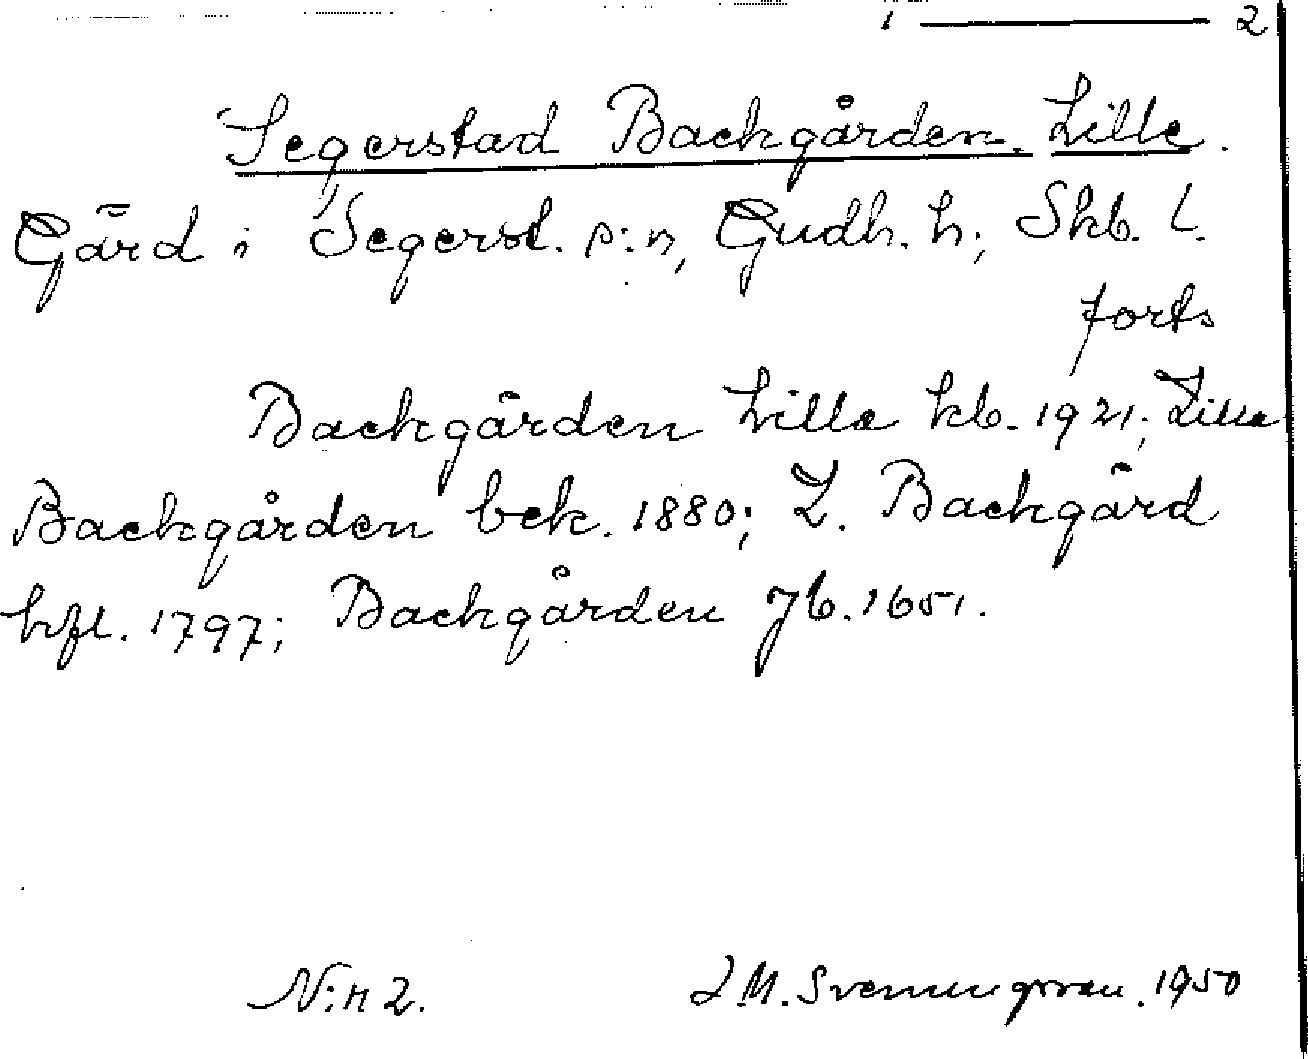 1 — 2
Segerstad Backgården. Lille.
Gård i Segerst. s:n, Gudh. h; Skb. l.
forts
Backgården Lilla kb. 1921; Lilla
Backgården bek. 1880; L. Backgård
hfl. 1797; Backgården Jb. 1651.
N:r 2. J.M. Svenningsson. 1950